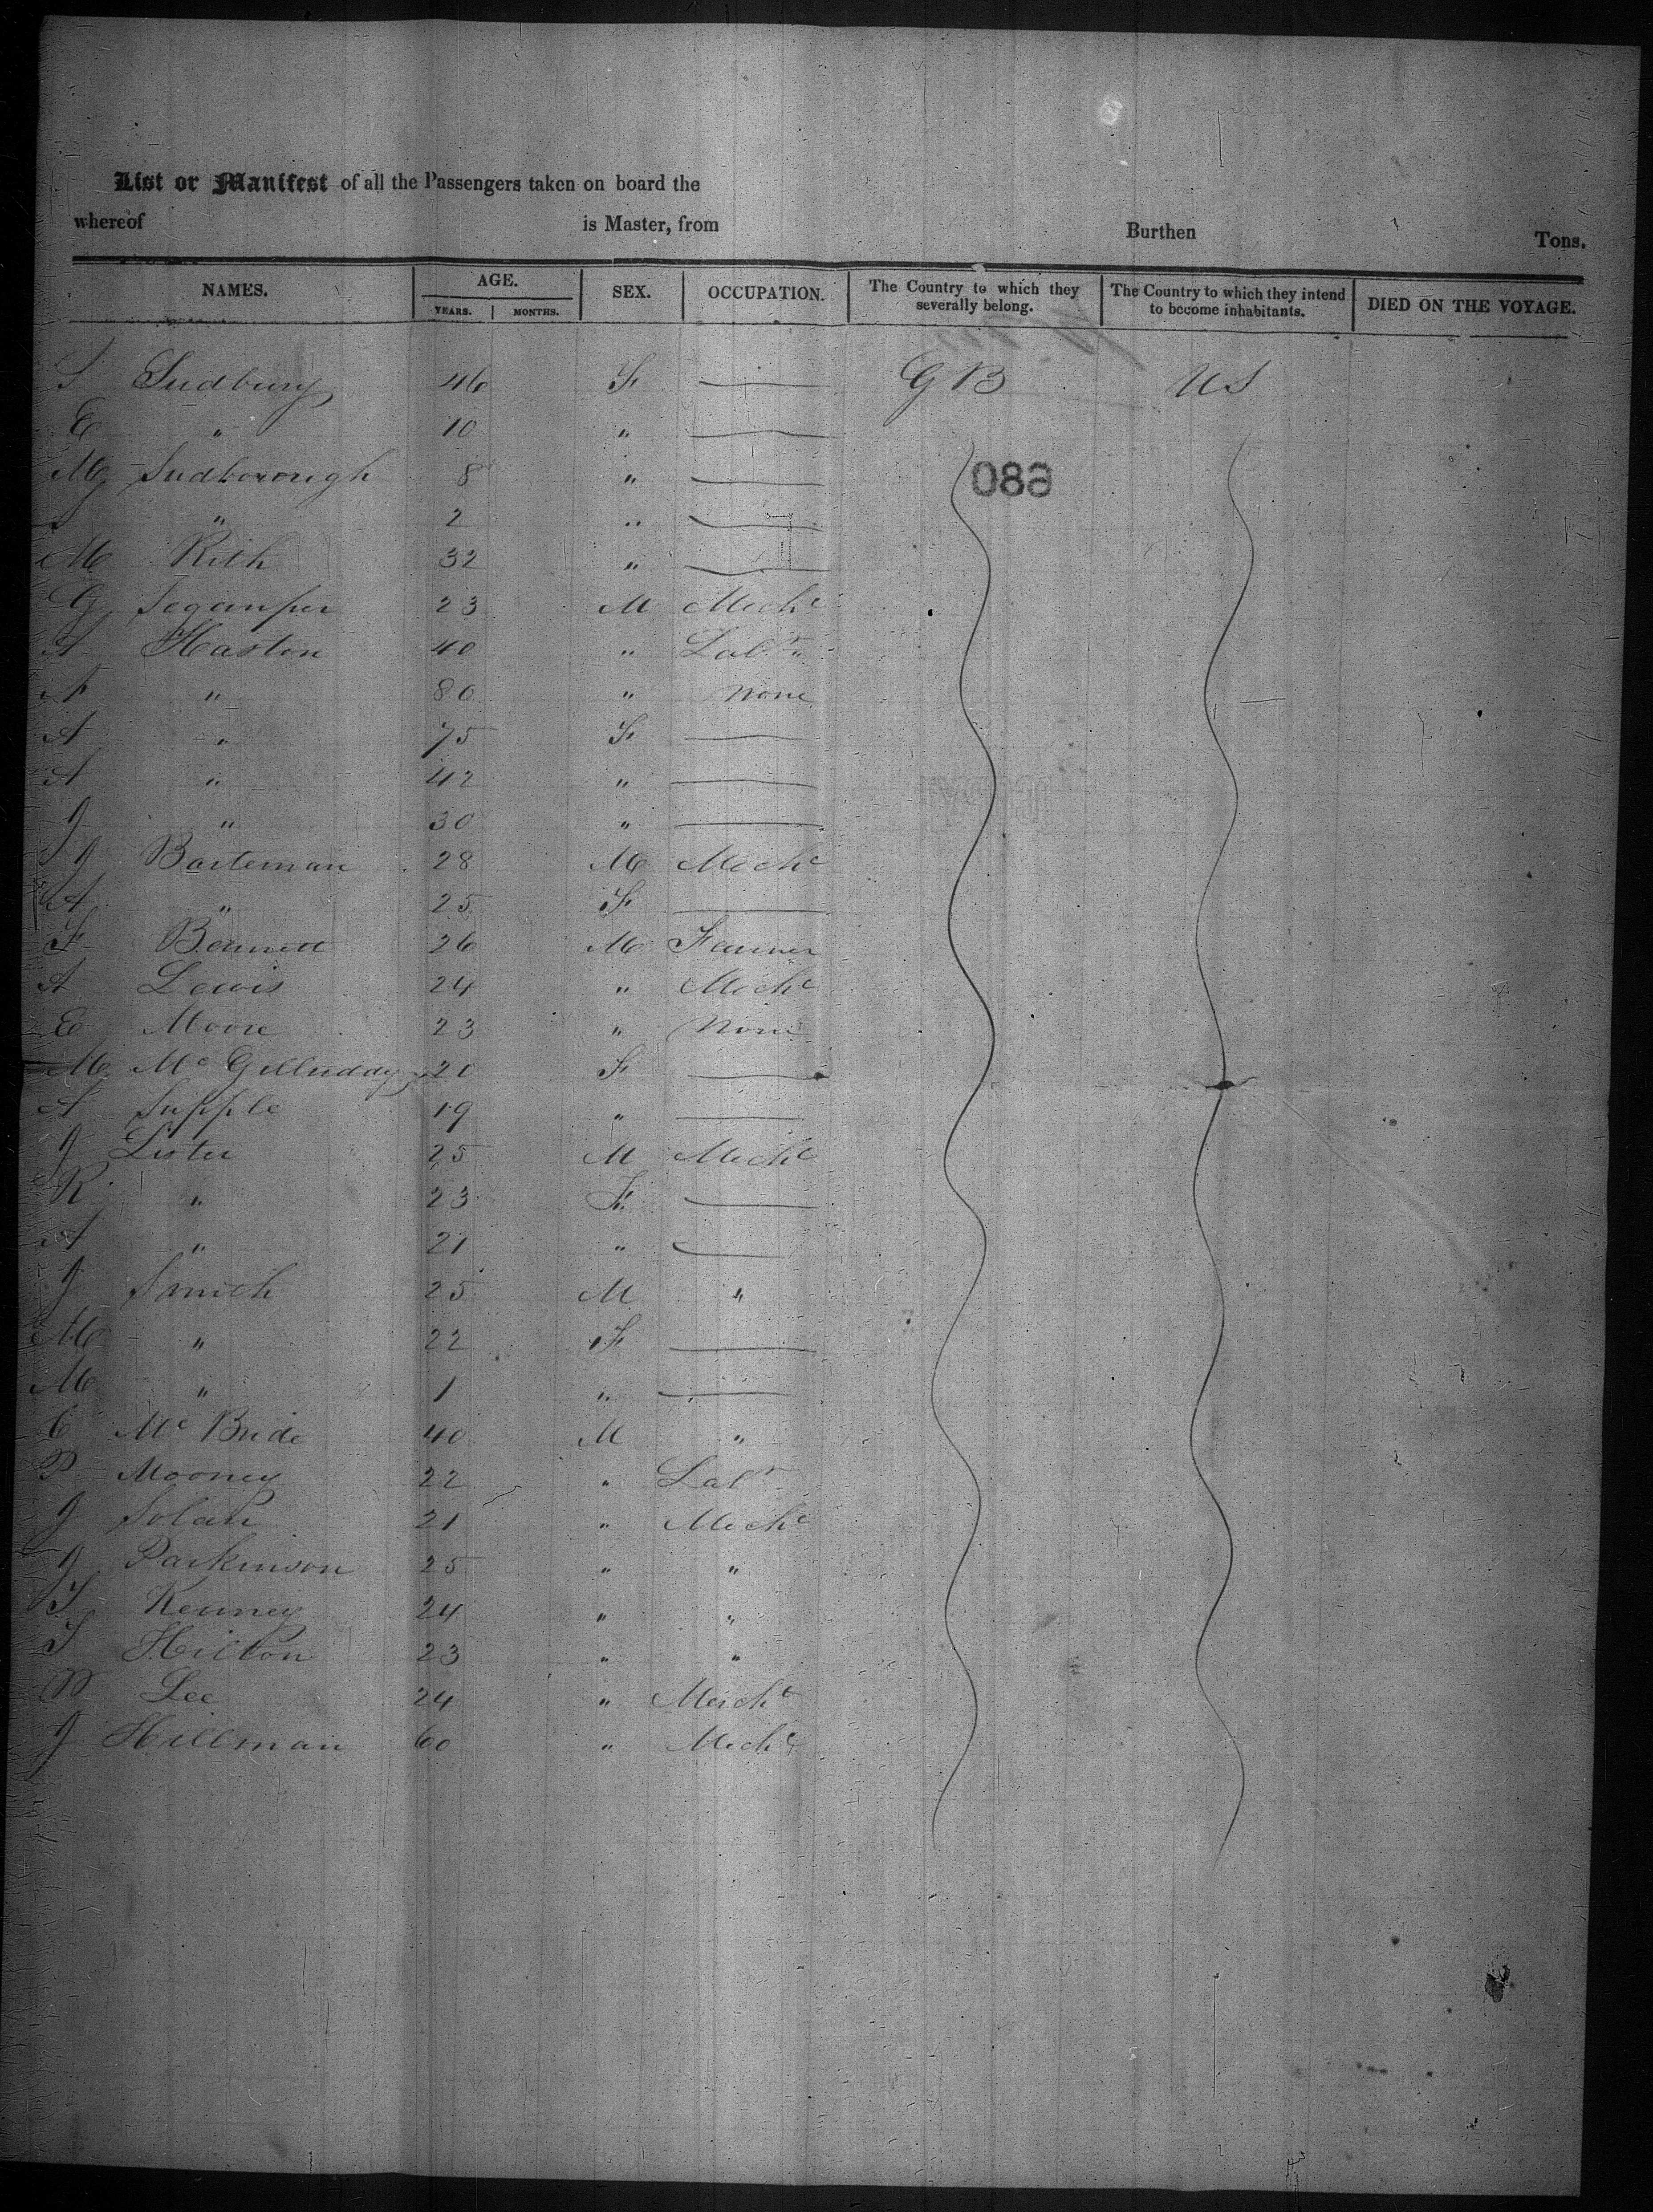 List or Manifest of all the Passengers taken on board the
whereof is Master, from Burthen Tons.
NAMES. AGE. SEX. OCCUPATION. The Country to which they severally belong. The Country to which they intend to become inhabitants. DIED ON THE VOYAGE.
YEARS. MONTHS.
S Sudbury 46 F — GB US
E " 10 " —
M Sudborough 8 " — 089
" 2 " —
M Rith 32 " —
G 23 M Mechc
A Haston 40 " Labr "
" 80 " None
A " 75 F —
A " 42 " —
J " 30 " —
J Barteman 28 M Mechc
A " 25 F —
F Bennett 26 M Farmer
A Lewis 24 " Mechc
E Moore 23 " None
M McGilluday 20 F —
A Supple 19 " —
J Lister 25 M Mechc
R " 23 F —
A " 21 " —
J Smith 25 M "
M " 22 F —
M " 1 " —
C McBride 40 M "
P Mooney 22 " Labr
J Solan 21 " Mechc
J Parkinson 25 " "
T Kenney 24 " "
T Hilton 23 " "
W Lee 24 " Mercht
J Hillman 60 " Mechc